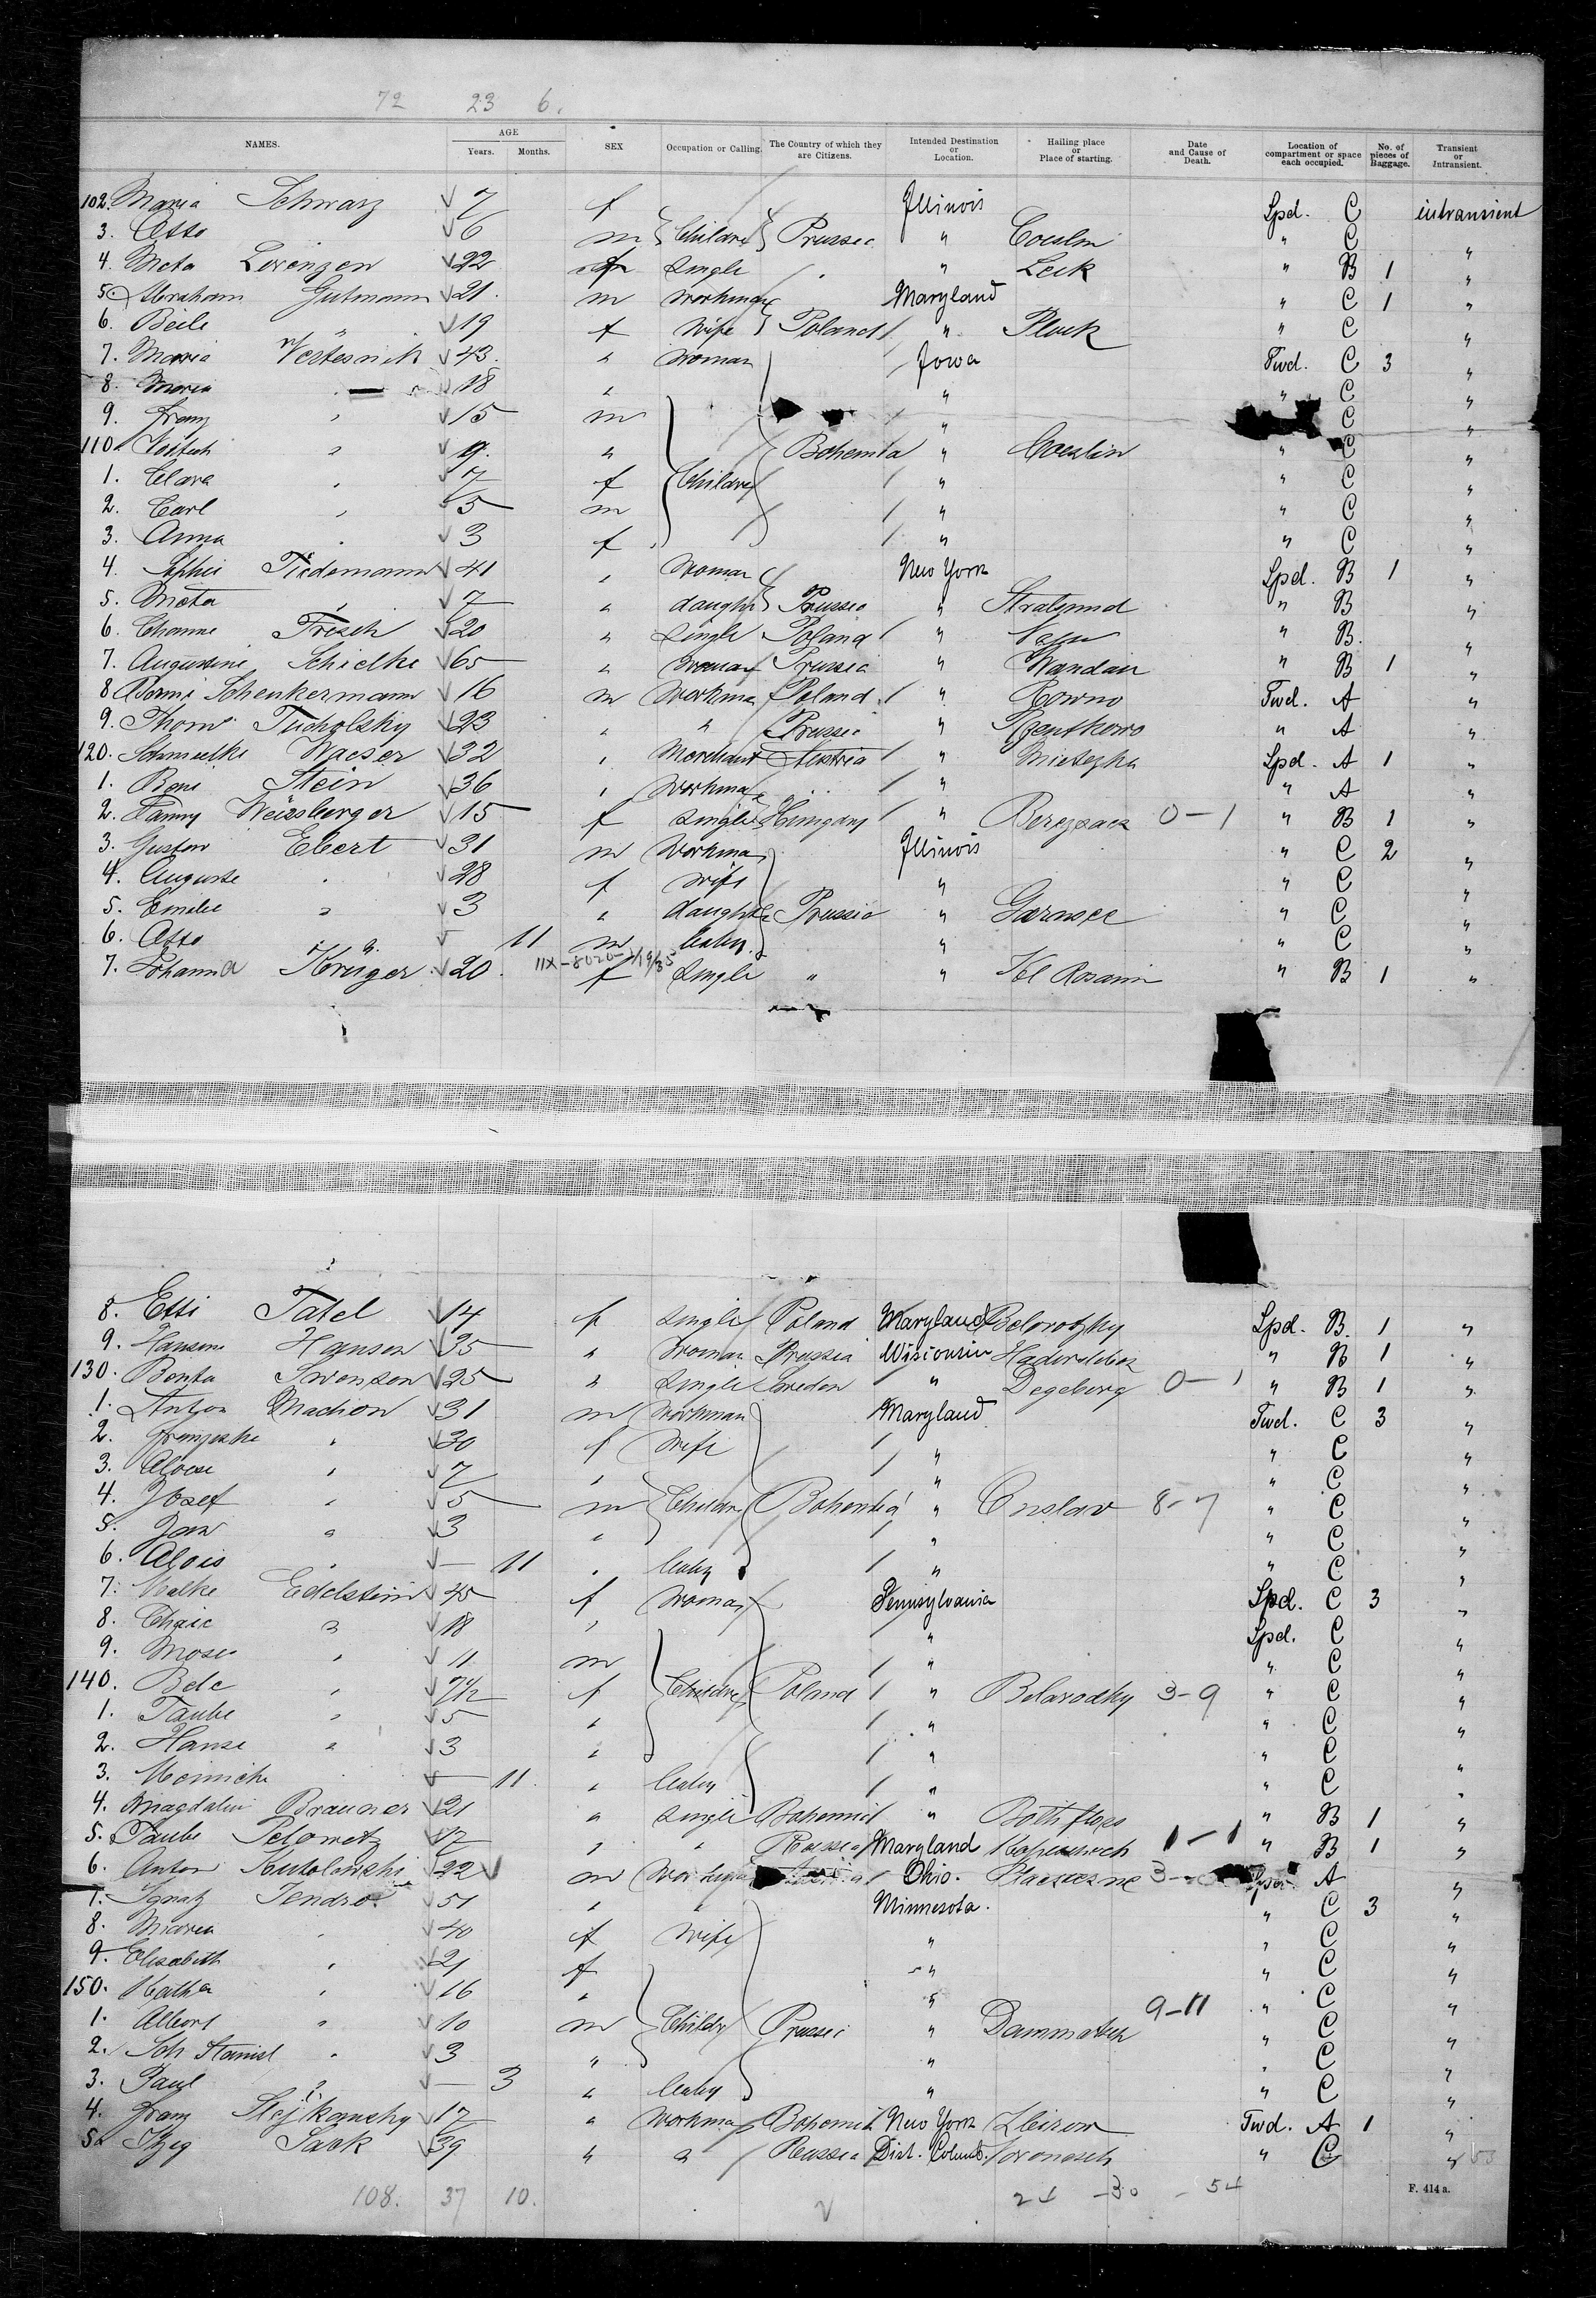 72 23 6.
NAMES. AGE Years. Months. SEX Occupation or Calling. The Country of which they are Citizens. Intended Destination or Location. Hailing place or Place of starting. Date and Cause of Death. Location of compartment or space each occupied. No. of pieces of Baggage. Transient or Intransient.
102. Maria Schwarz 7 f Illinois Spd. C intransient
3. Otto 6 m Childre Prussia " Coeslin " C "
4. Meta Lorenzen 22 f Single " Leck " B 1 "
5. Abraham Gutmann 21 m Workman Maryland " C 1 "
6. Beile " 19 f Wife Poland " Plock " C "
7. Maria Vestesnik 43 " Woman Iowa Twd. C 3 "
8. Maria " 18 " " " C "
9. Franz " 15 m " C "
110. " 9 " Bohemia " Coeslin " C "
1. Clara " 7 f Childre " " C "
2. Carl " 5 m " " C "
3. Anna " 3 f " " C "
4. Sophie Tiedemann 41 " Woman New York Spd. B 1 "
5. Meta " 7 " daught Prussia " Stralsund " B "
6. Channe Fresch 20 " Single Poland " " B. "
7. Augustine Schielke 65 " Woman Prussia " Wandau " B 1 "
8 Schenkermann 16 m Workma Poland " Kowno Twd. A "
9. Thom Tucholsky 23 " " Prussia " " A "
120. Schmelke Waeser 32 " Merchant Austria " Spd. A 1 "
1. Beni Stein 36 " Workma " " A "
2. Fanny Weissberger 15 f Single Hungary " 0-1 " B 1 "
3. Gustav Ebert 31 m Workma Illinois " C 2 "
4. Auguste " 28 f Wife " " C "
5. Emilie " 3 " daught Prussia " Garnsee " C "
6. Otto 11 m baby " " C "
11X-8020-7/19/35
7. Johanna Krüger 20 f Single " " Kl Rosanin " B 1 "
8. Etti Tatel 14 f Single Poland Maryland Belorotzky Spd. B. 1 "
9. Hansine Hansen 35 " Woman Prussia Wisconsin Hadersleben " B 1 "
130. Benta Swenson 25 " Single Sweden " Degeberg 0-1 " B 1 "
1. Anton Machon 31 m Workman Maryland Twd. C 3 "
2. Franziska " 30 f Wife " " C "
3. " 7 " " " C "
4. Josef " 5 m Childre Bohemia " Onslav 8-7 " C "
5. Jan " 3 " " " C "
6. Alois " — 11 " baby " " C "
7. Malke Edelstein 45 f Woman Pennsylvania Spd. C 3 "
8. Chaie " 18 " " Spd. C "
9. Moses " 11 m " " C "
140. Bele " 7½ f Childre Poland " Belarodky 3-9 " C "
1. Taube " 5 " " " C "
2. Hanse " 3 " " " C "
3. — 11. " baby " " C "
4. Magdalin Brauner 21 " Single Bohemia " " B 1 "
5. Taube Pelowetz 17 " " Russia Maryland 1-1 " B 1 "
6. Anton 22 m Ohio. 3- A "
7. Ignatz Jendro 51 " " Minnesota. " C 3 "
8. Maria " 40 f Wife " " C "
9. Elisabeth " 21 f " " C "
150. Katha " 16 " " " C "
1. Albert " 10 m Childr Prussi " Dammatsch 9-11 " C "
2. Joh Stanisl " 3 " " " C "
3. Paul " — 3 " baby " " C "
4. Franz 17 " Workma Bohemia New York Zbirow Twd. A 1 "
5. Itzig Sack 39 " " Russia Dist. Columb. " C " 53
108. 37 10. 24 -30 - 54
F. 414 a.